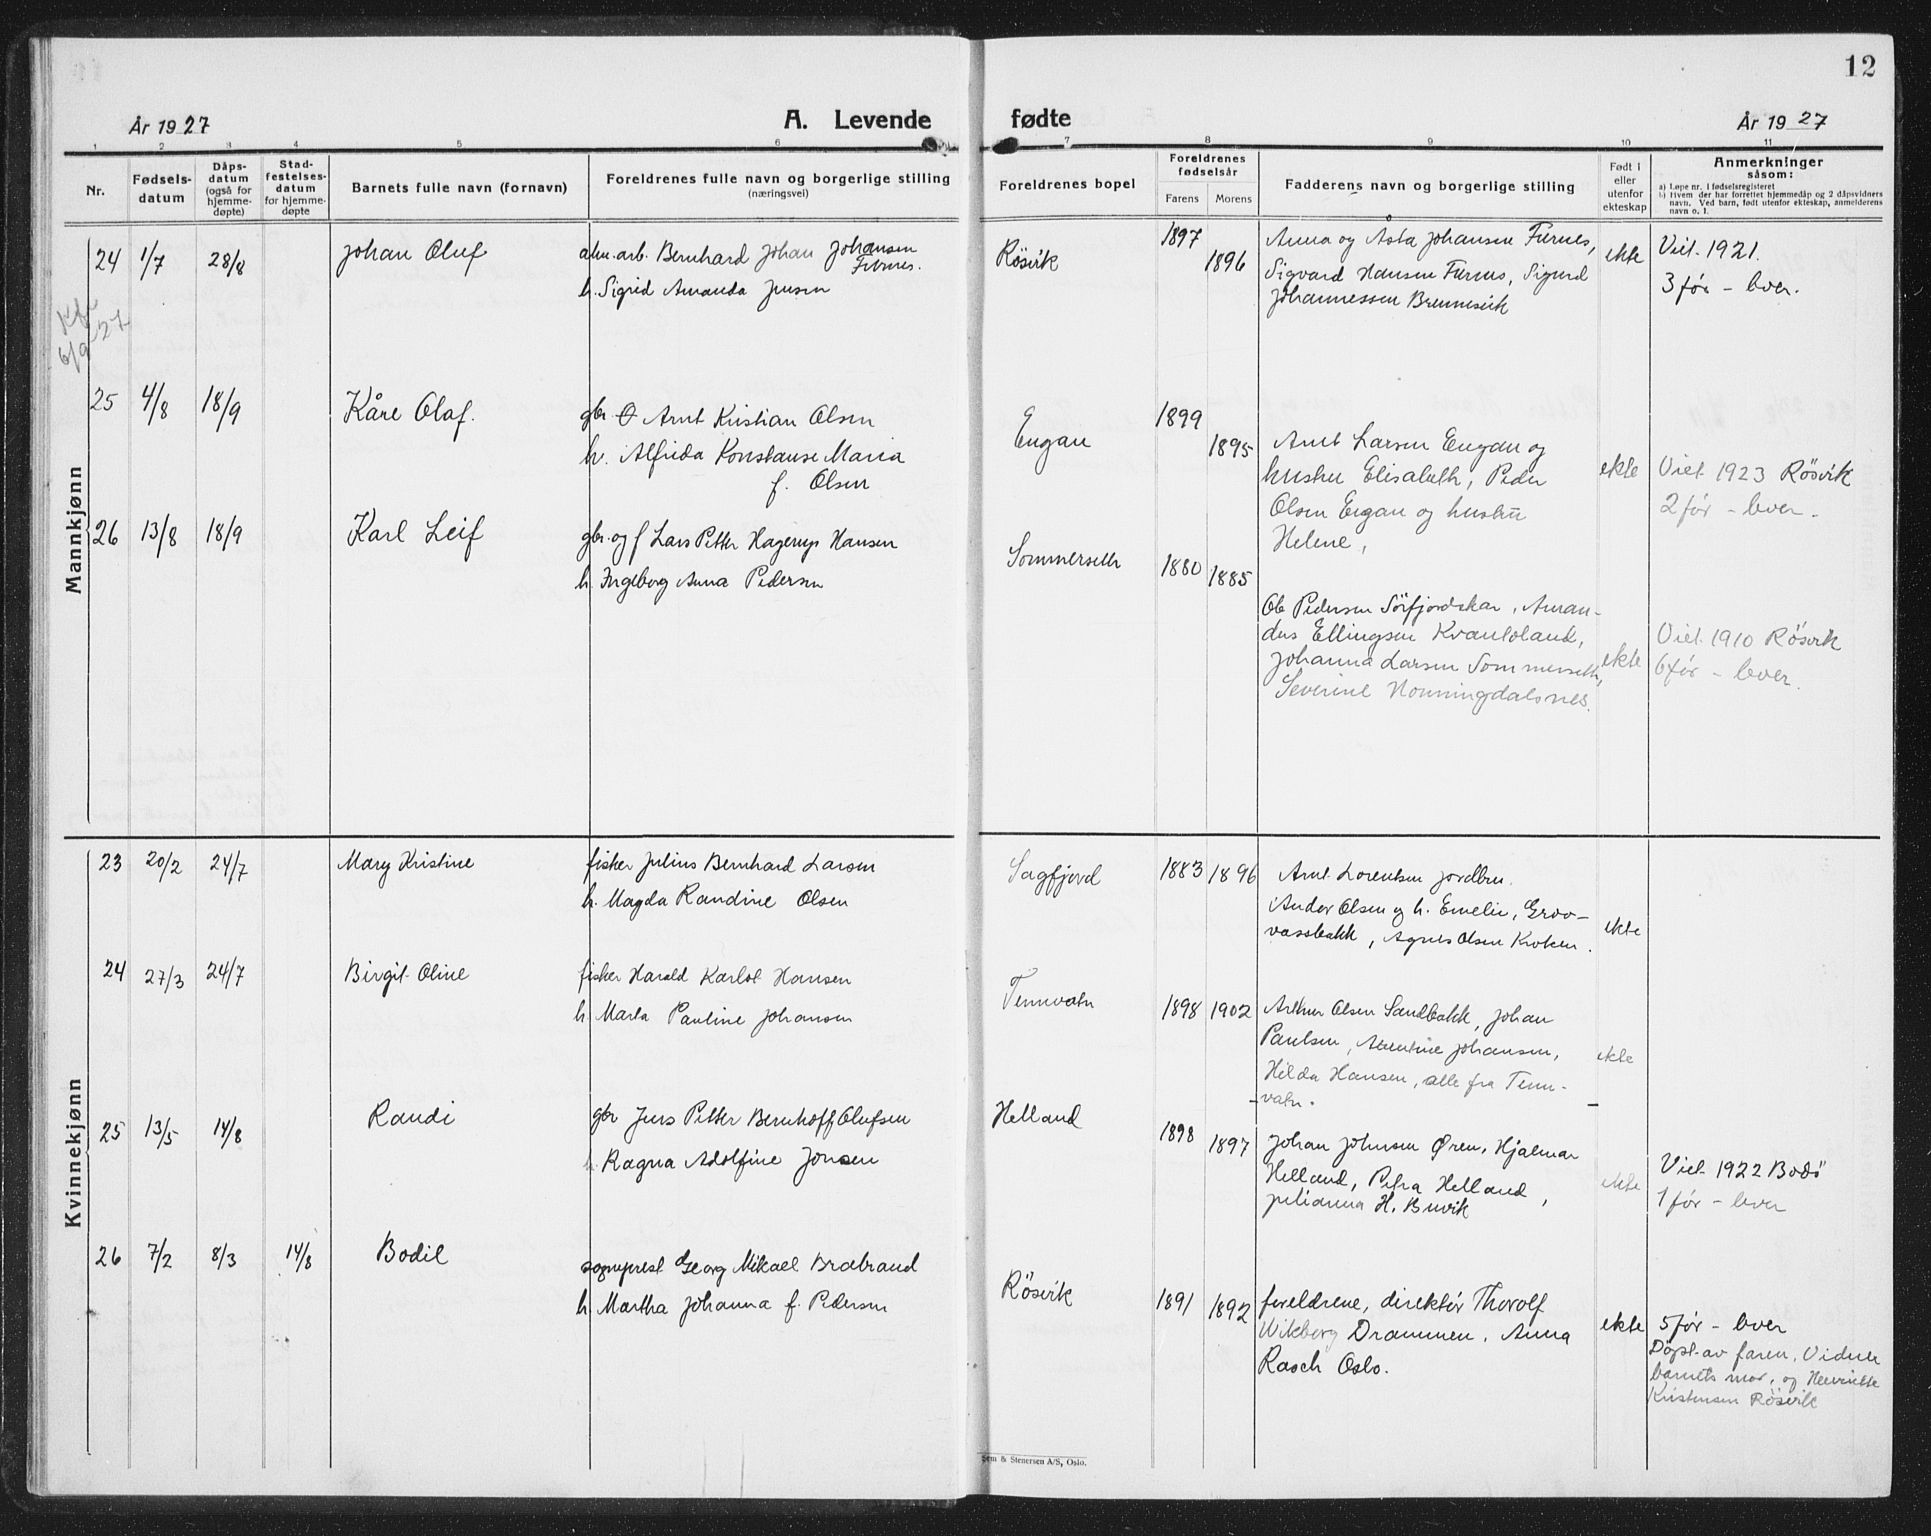 12
År 1927
A. Levende fødte
År 1927
1 2 3 4 5 6 7 8 9 10 11
Nr.
Fødsels-
datum
Dåps-
datum
(også for
hjemme-
døpte)
Stad-
festelses-
datum
for hjemme-
døpte
Barnets fulle navn (fornavn)
Foreldrenes fulle navn og borgerlige stilling
(næringsvei)
Foreldrenes bopel
Foreldrenes
fødselsår
Farens Morens
Fadderens navn og borgerlige stilling
Født i
eller
utenfor
ekteskap
Anmerkninger
såsom:
a) Løpe nr. i fødselsregisteret
b) Hvem der har forrettet hjemmedåp og 2 dåpsvidners
navn. Ved barn, født utenfor ekteskap, anmelderens
navn o. l.
Mannkjønn
24 1/7 28/8
Johan Oluf
alm. arb. Bernhard Johan Johansen
Furnes.
h. Sigrid Amanda Jensen
Rösvik
1897
1896
Anna og Åsta Johansen Furnes,
Sigvard Hansen Furnes, Sigurd
Johannessen Brennesvik
ekte
Viet. 1921.
3 før - lever.
6/9 27
25 4/8 18/9
Kåre Olaf.
gbr. Arnt Kristian Olsen
h. Alfrida Konstanse Maria
f. Olsen
Engan
1899
1895
Arnt Larsen Engan og
hustru Elisabeth, Peder
Olsen Engan og hustru
Helene,
ekte
Viet 1923 Rösvik
2 før - lever.
26 13/8 18/9
Karl Leif
gbr. og f Lars Petter Hagerup Hansen
h. Ingeborg Anna Pedersen
Sommerseth
1880 1885
Ole Pedersen Sörfjordskar, Aman-
dus Ellingsen Kvantoland,
Johanna Larsen Sommerseth,
Severine Nonningdalsnes.
ekte
Viet. 1910 Rösvik
6 før - lever.
Kvinnekjønn
23 20/2 24/7
Mary Kristine
fisker Julius Bernhard Larsen
h. Magda Randine Olsen
Sagfjord
1883 1896
Arnt Lorentsen Jordbru.
Andor Olsen og h. Emelie, Grov-
vassbakk, Agnes Olsen Kroken.
ekte
24 27/3 24/7
Birgit Oline
fisker Harald Karlot Hansen
h Marta Pauline Johansen
Tennvatn
1898 1902
Arthur Olsen Sandbakk, Johan
Paulsen, Johansen,
Hilda Hansen, alle fra Tenn-
-vatn.
ekte
25 13/5 14/8
Randi
gbr Jens Petter Bernhoff Olufsen
h. Ragna Adolfine Jensen
Helland
1898
1897
Johan Johnsen Øren, Hjalmar
Helland, Petra Helland,
Julianna H. Buvik
ekte
Viet 1922 Bodö
1 før - lever
26 7/2 8/3 14/8
Bodil
sogneprest Georg Mikael Brabrand
h. Martha Johanna f. Pedersen
Rösvik
1891 1892
foreldrene, direktör Thorolf
Wikborg Drammen, Anna
Rasch Oslo.
ekte
5 før - lever
Döpt av faren. Vidner
barnets mor, og Henriette
Kristensen Rösvik
Sem & Stenersen A/S, Oslo.